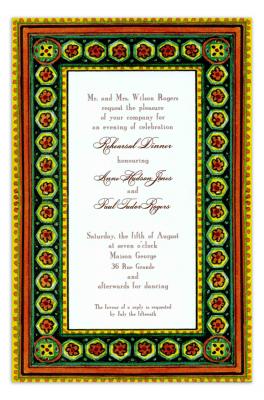 Mr. and Mrs. Wilson Rogers
request the pleasure
of your company for
an evening of celebration
Rehearsal Dinner
honouring
Anne Hudson Jones
and
Paul Tudor Rogers
Saturday, the fifth of August
at seven o'clock
Maison George
36 Rue Grande
and
afterwards for dancing
The favour of a reply is requested
by July the fifteenth